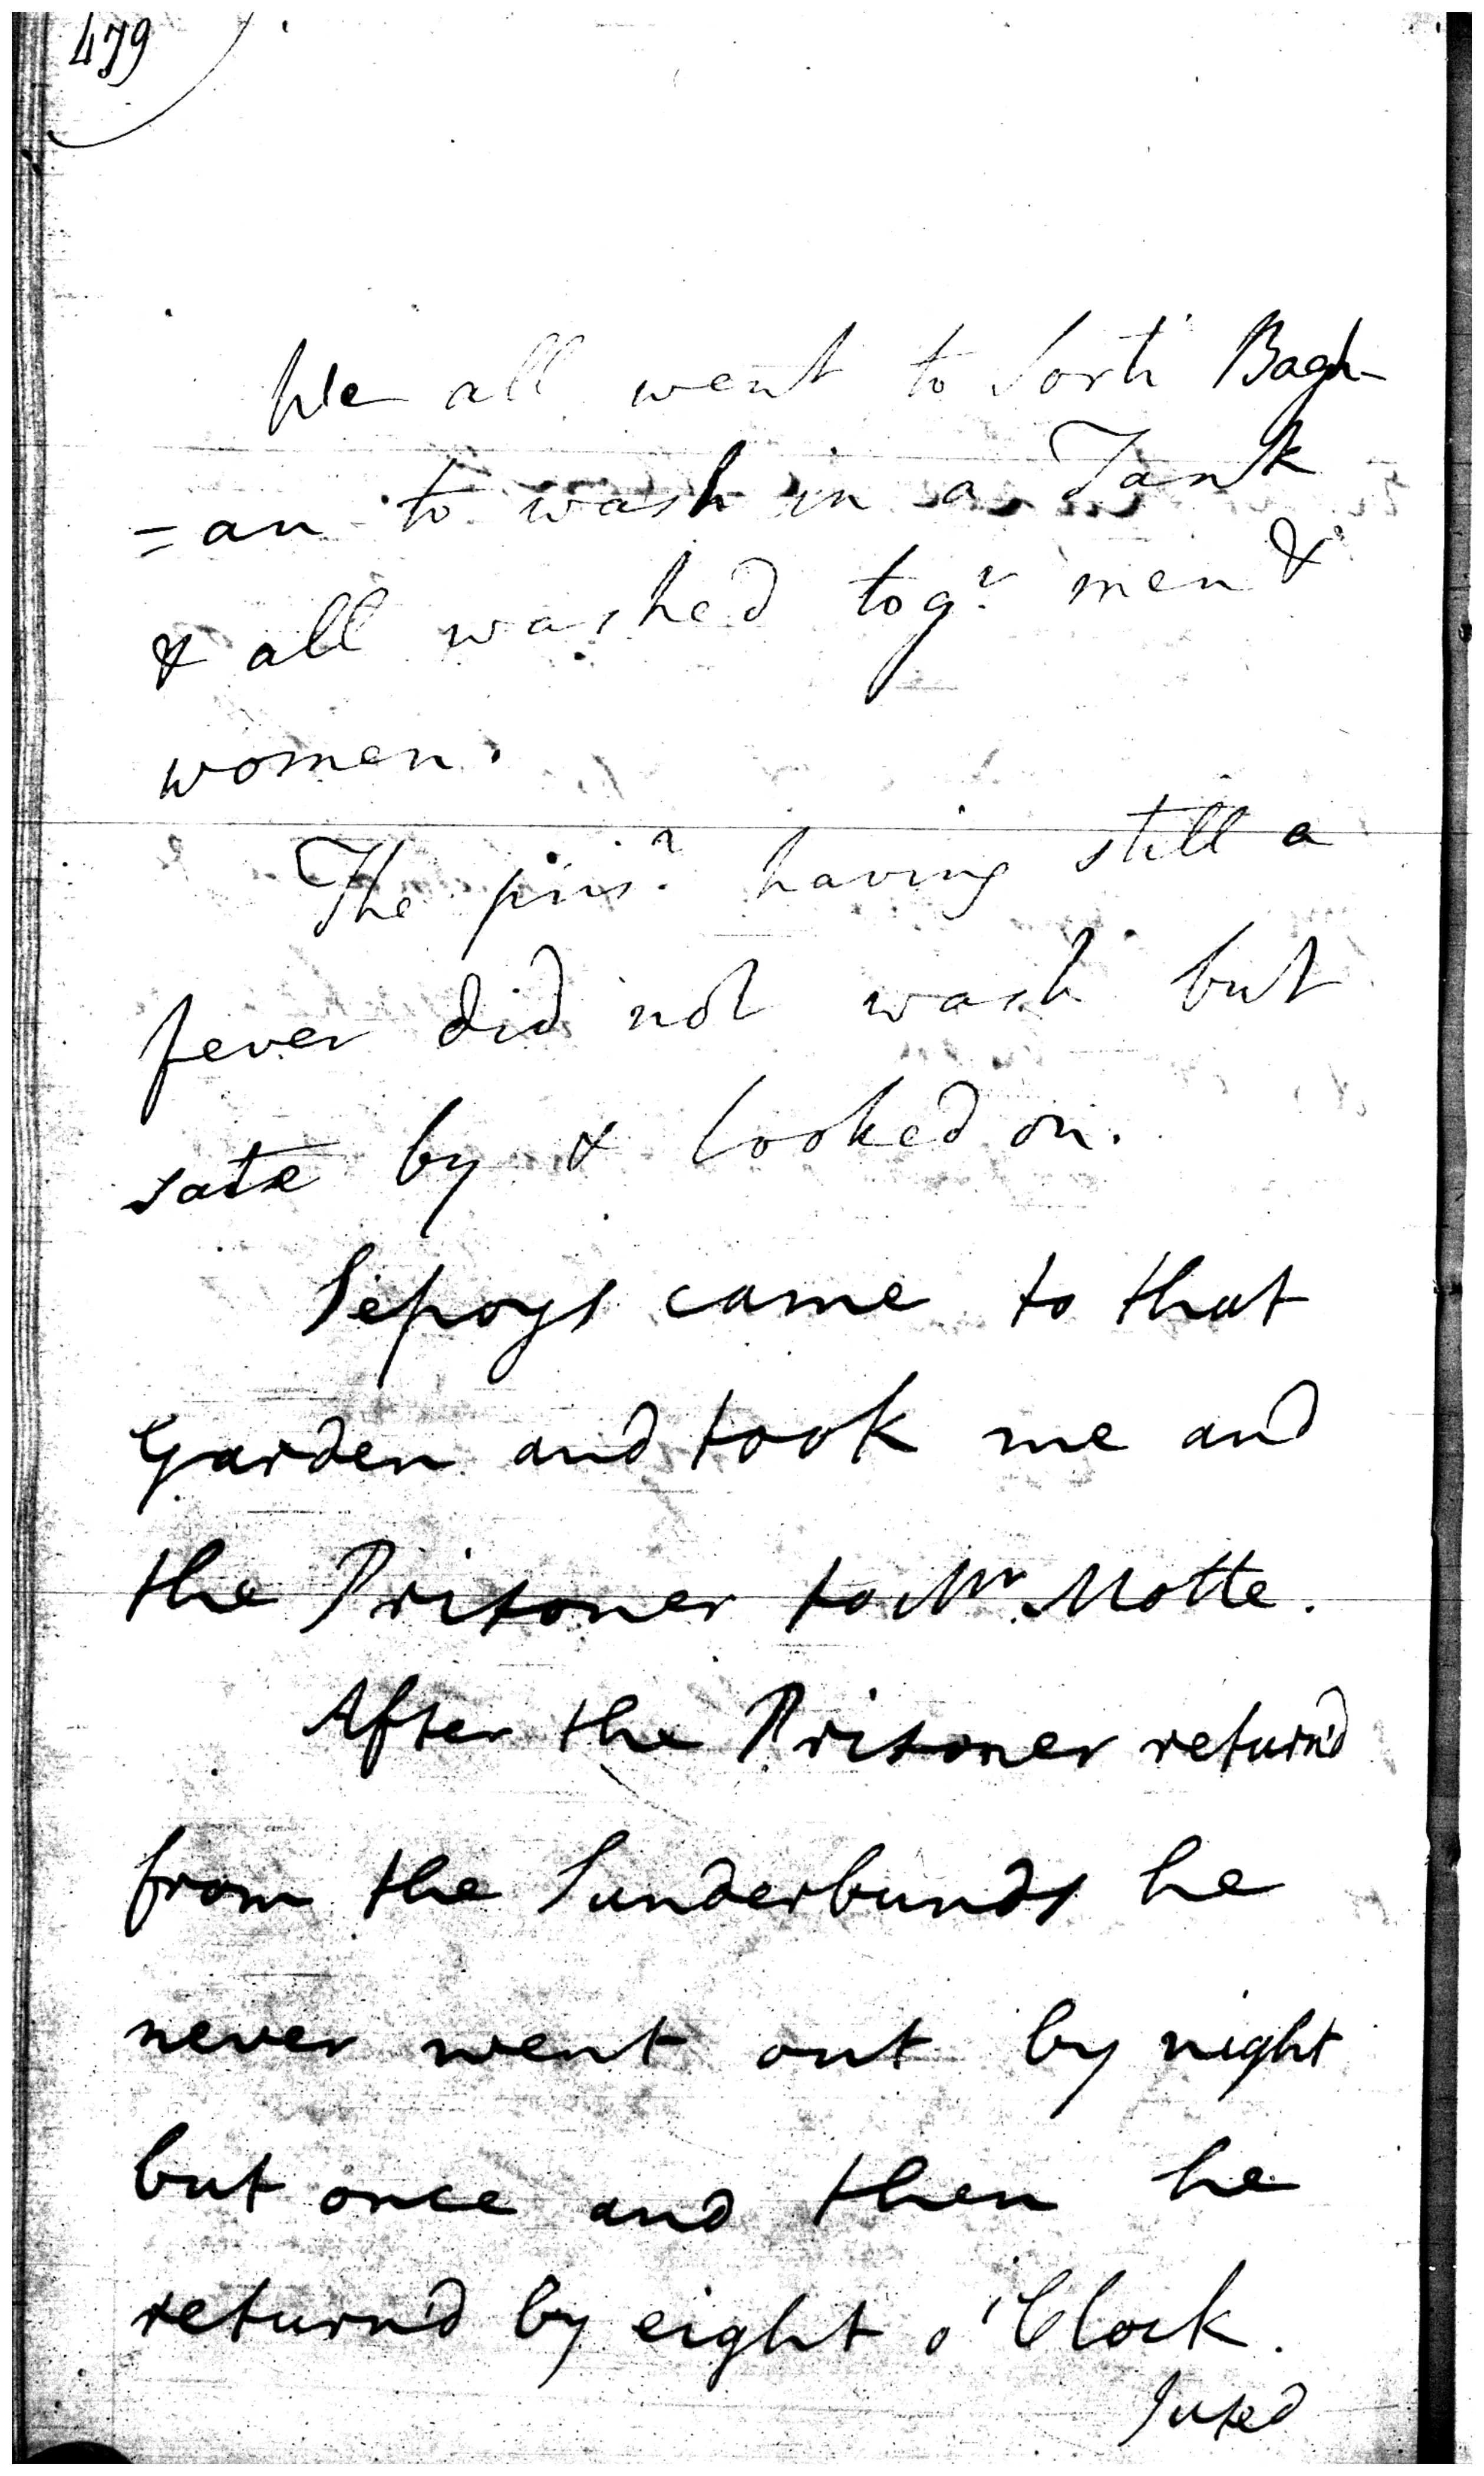 479
We all went to Sorti Bagh-
=an to wash in a Tank
& all washed togr. men &
women.
The prisr. having still a
fever did not wash but
sate by & looked on.
Sepoys came to that
Garden and took me and
the Prisoner to Mr. Motte.
After the Prisoner return'd
from the Sunderbunds he
never went out by night
but once and then he
return'd by eight o'Clock.
I used